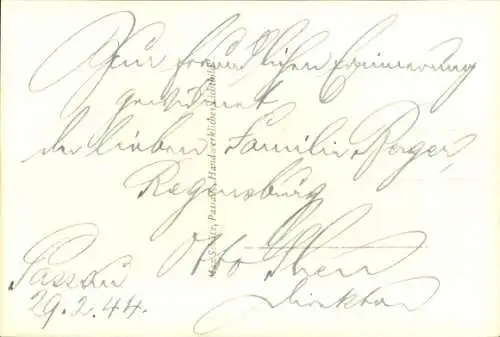 Zur freundlichen Erinnerung
gewidmet
der lieben Familie Berger,
Regensburg
Otto
Direktor
Passau
29.2.44.
Passau, Handwerklicher Lichtdruck